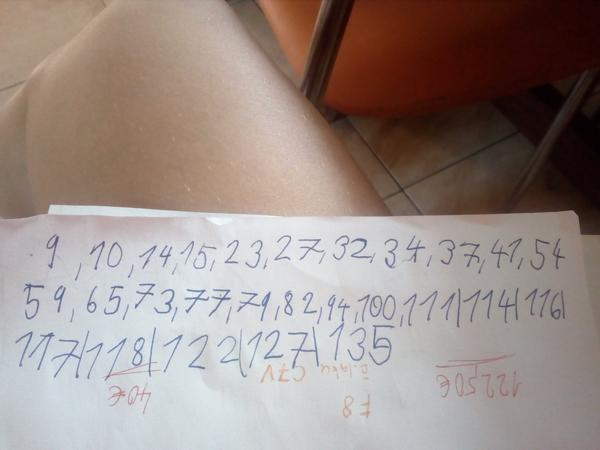 9, 10, 14, 15, 23, 27, 32, 34, 37, 41, 54
59, 65, 73, 77, 79, 82, 94, 100, 111|114|116|
117|118|122|127|135
40€
C7V
F8
1250€